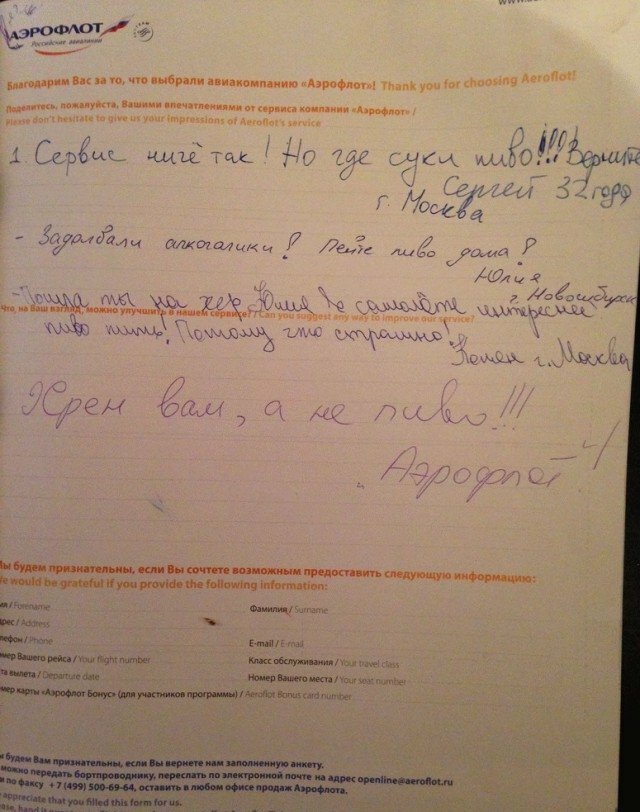 АЭРОФЛОТ
Российские авиалинии
Благодарим Вас за то, что выбрали авиакомпанию «Аэрофлот»! Thank you for choosing Aeroflot!
Поделитесь, пожалуйста, Вашими впечатлениями от сервиса компании «Аэрофлот» /
Please don't hesitate to give us your impressions of Aeroflot's service
1. Сервис ничё так! Но где суки пиво!!!! Верните
Сергей 32 года
г. Москва
- Задолбали алкоголики! Пейте пиво дома!
Юлия
г. Новосибирск
- Пошла ты на хер Юлия в самолёте интереснее
Что, на Ваш взгляд, можно улучшить в нашем сервисе? / Can you suggest any way to improve our service?
пиво пить! Потому что страшно!
г. Москва
Хрен вам, а не пиво!!!
"Аэрофлот"
Мы будем признательны, если Вы сочтете возможным предоставить следующую информацию:
We would be grateful if you provide the following information:
мя / Forename Фамилия / Surname
дрес / Address
лефон / Phone E-mail / E-mail
мер Вашего рейса / Your flight number Класс обслуживания / Your travel class
та вылета / Departure date Номер Вашего места / Your seat number
мер карты «Аэрофлот Бонус» (для участников программы) / Aeroflot Bonus card number
ы будем Вам признательны, если Вы вернете нам заполненную анкету.
можно передать бортпроводнику, переслать по электронной почте на адрес openline@aeroflot.ru
и по факсу +7 (499) 500-69-64, оставить в любом офисе продаж Аэрофлота.
appreciate that you filled this form for us.